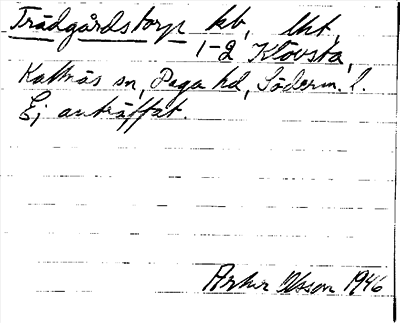 Trädgårdstorp hb, lht,
1-2 Klövsta,
Kattnäs sn, Daga hd, Söderm. l.
Ej anträffat.
Artur Olsson 1946